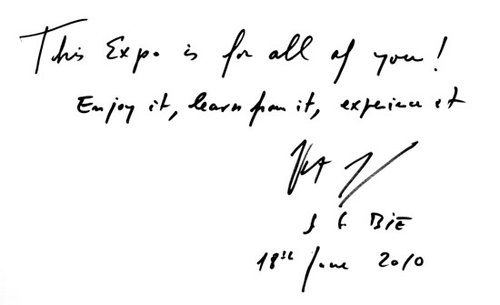 This Expo is for all of you!
Enjoy it, learn from it, experience it
S G BIE
18st June 2010